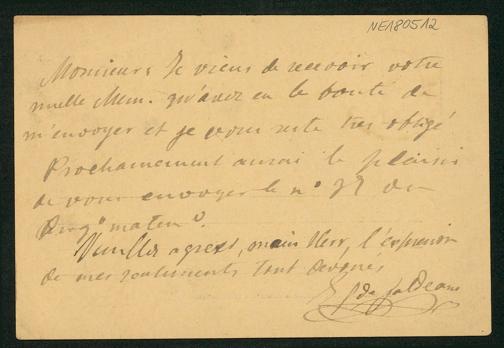 NE180512
Monsieur: Je viens de recevoir votre
nuelle Mem. qu'avez eu le bonté de
m'envoyer et je vous reste tres obligé
Prochainement aurai le plaisir
de vous envoyer le nº de
Prog^o matem^o.
Veuillez agreer, mein Herr, l'expression
de mes sentiments tout devoués